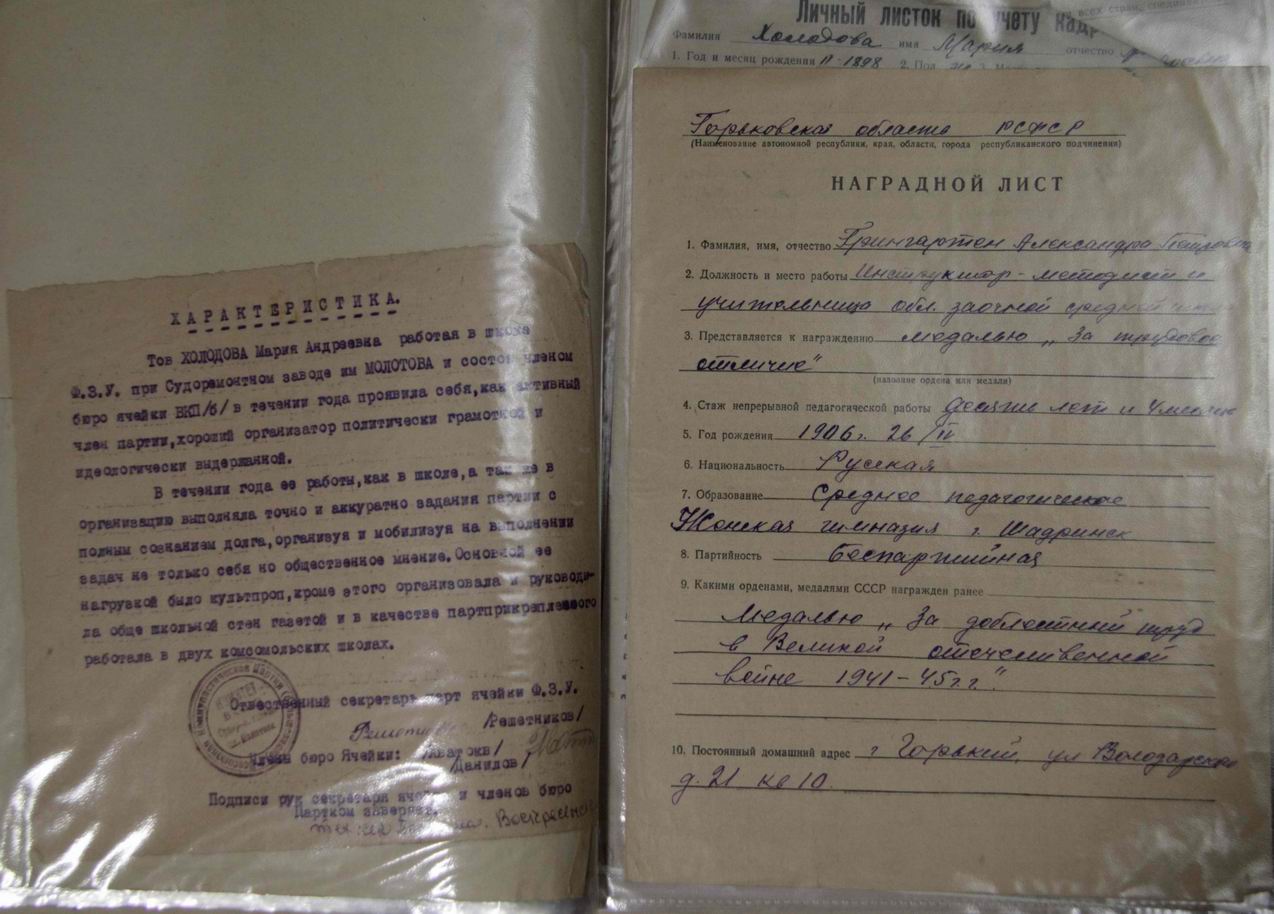 ХАРАКТЕРИСТИКА.
Тов ХОЛОДОВА Мария Андреевна работая в школе
Ф.З.У. при Судоремонтном заводе им МОЛОТОВА и состоя членом
бюро ячейки ВКП/б/ в течении года проявила себя,как активный
член партии,хороший организатор политически грамотной и
идеологически выдержанной.
В течении года ее работы,как в школе,а так же в
организацию выполняла точно и аккуратно задания партии с
полным сознанием долга,организуя и мобилизуя на выполнении
задач не только себя но общественное мнение.Основной ее
нагрузкой было культпроп,кроме этого организовала и руководи-
ла обще школьной стен газетой и в качестве партприкрепленного
работала в двух комсомольских школах.
Отвественный секретарь парт ячейки Ф.З.У.
/Решетников/
Члены бюро Ячейки: /Аватокв/
/Данилов/
Подписи рук секретаря ячейки и членов бюро
Партком заверяет.
Личный листок по учету кадр
всех стран,
Фамилия Холодова имя Мария отчество
1. Год и месяц рождения II-1898 2. Пол
Горьковская область РСФСР
(Наименование автономной республики, края, области, города республиканского подчинения)
НАГРАДНОЙ ЛИСТ
1. Фамилия, имя, отчество Грингартен Александра Петровна
2. Должность и место работы Инструктор-методист и
учительница обл. заочной средней
3. Представляется к награждению медалью „За трудовое
отличие"
(название ордена или медали)
4. Стаж непрерывной педагогической работы Десять лет и 4 месяца
5. Год рождения 1906г. 26/II
6. Национальность Русская
7. Образование Среднее педагогическое
Женская гимназия г. Шадринск
8. Партийность Беспартийная
9. Какими орденами, медалями СССР награжден ранее
Медалью „За доблестный труд
в Великой отечественной
войне 1941-45гг."
10. Постоянный домашний адрес г Горький, ул Володарского
д. 21 кв 10.